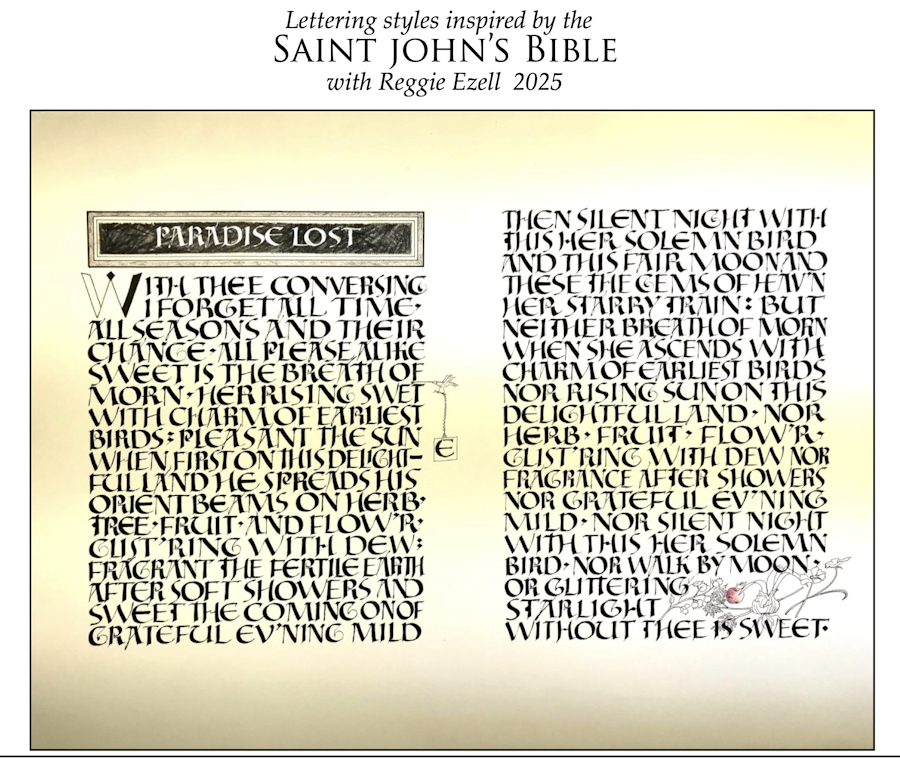 Lettering styles inspired by the
SAINT JOHN'S BIBLE
with Reggie Ezell 2025
PARADISE LOST
WITH THEE CONVERSING
I FORGET ALL TIME·
ALL SEASONS AND THEIR
CHANGE·ALL PLEASE ALIKE
SWEET IS THE BREATH OF
MORN·HER RISING SWET
E
WITH CHARM OF EARLIEST
BIRDS: PLEASANT THE SUN
WHEN FIRST ON THIS DELIGHT-
FUL LAND HE SPREADS HIS
ORIENT BEAMS ON HERB·
TREE·FRUIT·AND FLOW'R·
GLIST'RING WITH DEW:
FRAGRANT THE FERTILE EARTH
AFTER SOFT SHOWERS AND
SWEET THE COMING ON OF
GRATEFUL EV'NING MILD
THEN SILENT NIGHT WITH
THIS HER SOLEMN BIRD
AND THIS FAIR MOON AND
THESE THE GEMS OF HEAVN
HER STARRY TRAIN: BUT
NEITHER BREATH OF MORN
WHEN SHE ASCENDS WITH
CHARM OF EARLIEST BIRDS
NOR RISING SUN ON THIS
DELIGHTFUL LAND·NOR
HERB·FRUIT·FLOW'R·
GLIST'RING WITH DEW NOR
FRAGRANCE AFTER SHOWERS
NOR GRATEFUL EV'NING
MILD·NOR SILENT NIGHT
WITH THIS HER SOLEMN
BIRD·NOR WALK BY MOON·
OR GLITTERING
STARLIGHT
WITHOUT THEE IS SWEET·